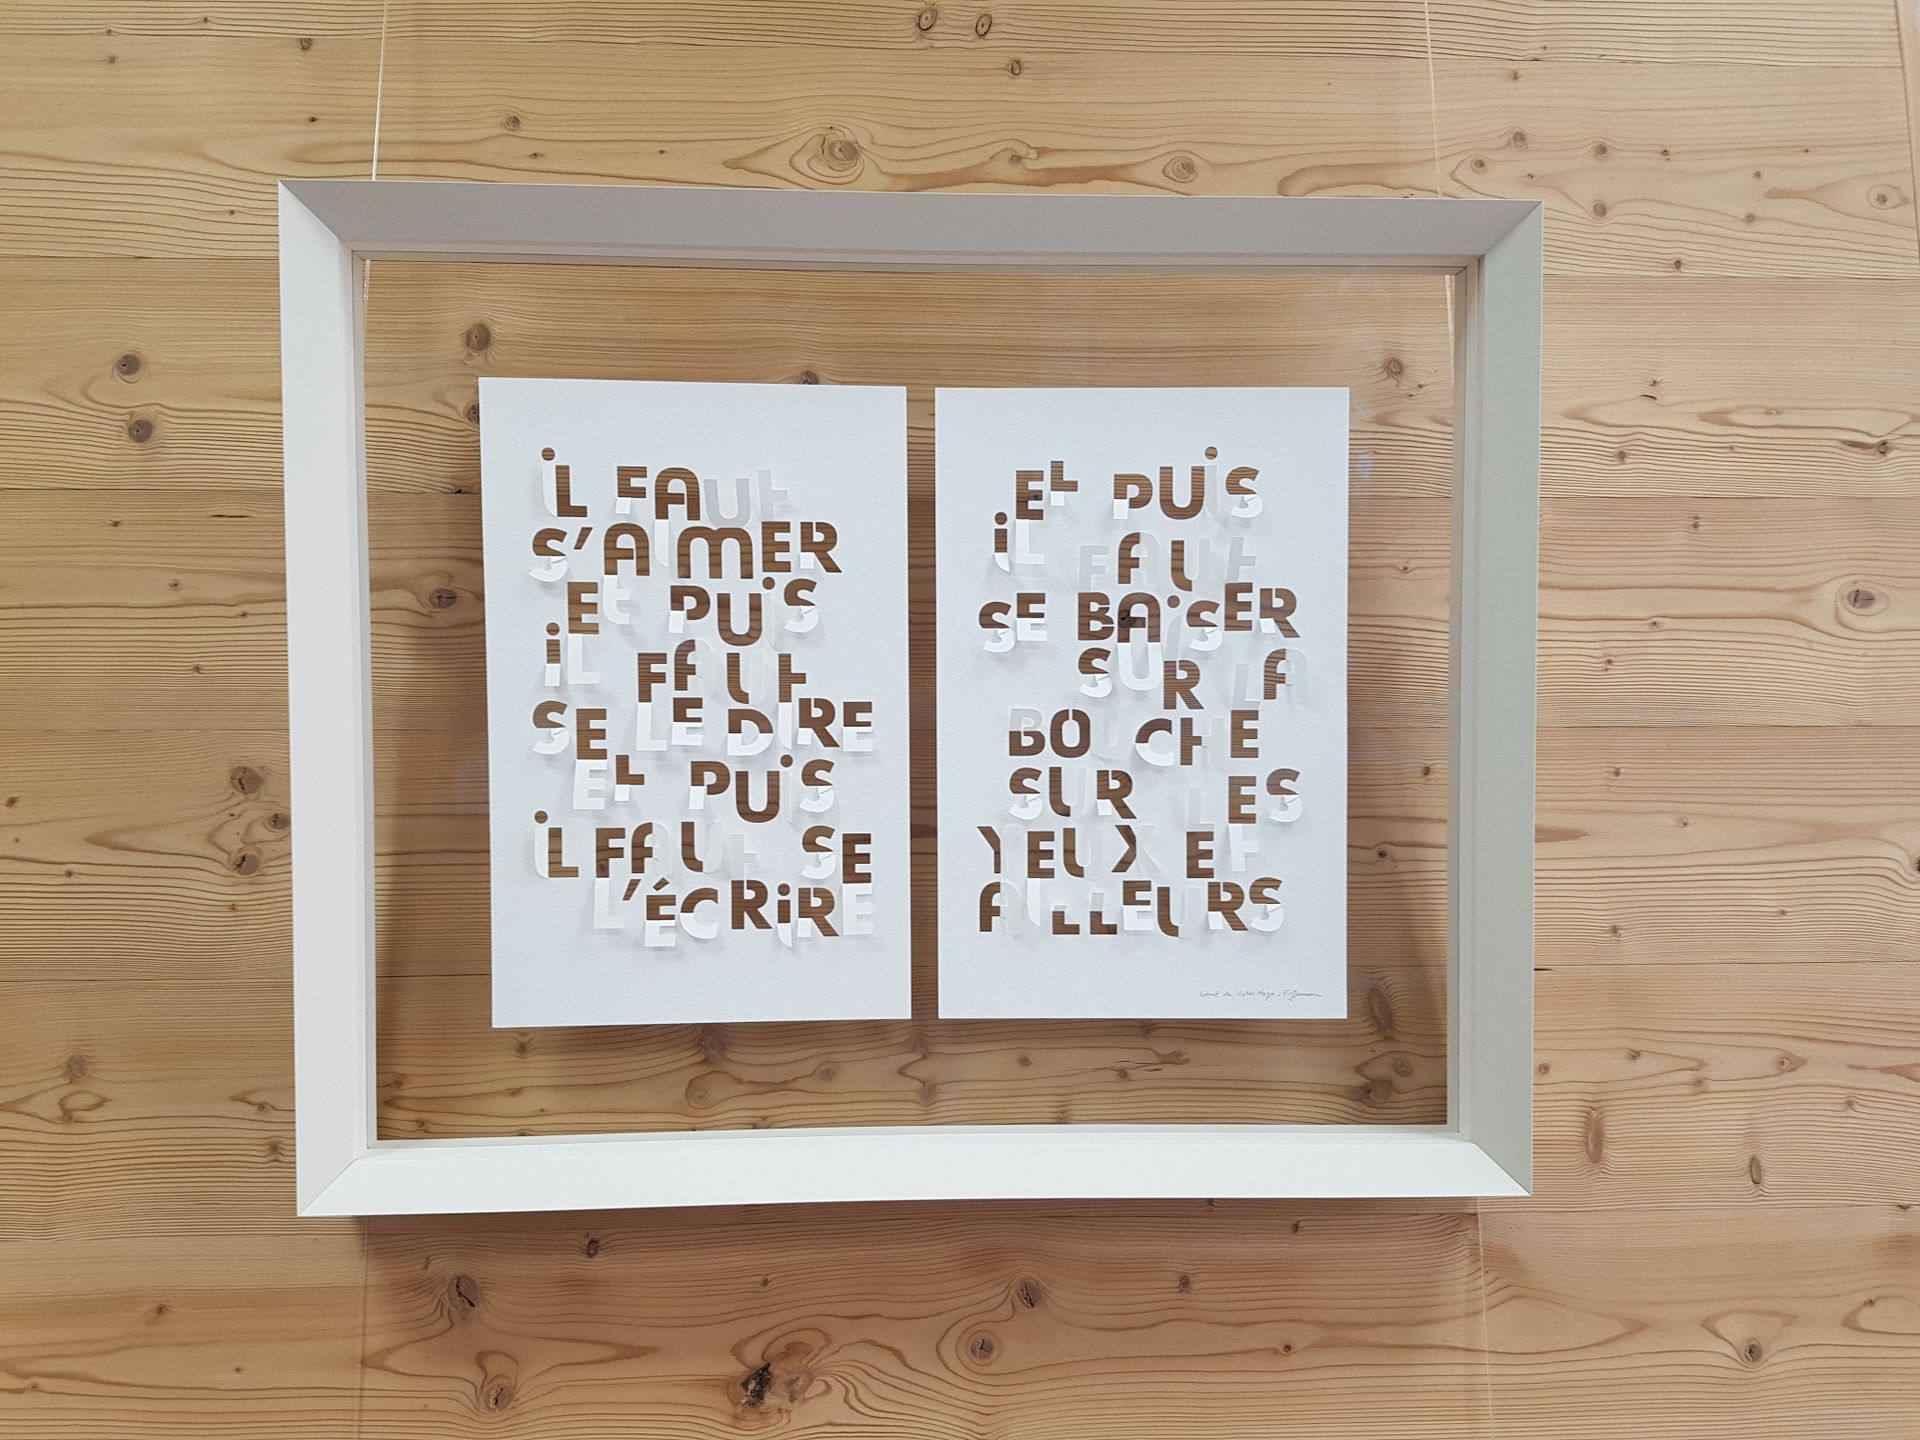 iL FAUt
S'AiMER
Et PUiS
iL FAUt
SE LE DiRE
Et PUiS
iL FAUt SE
L'ÉCRiRE
Et PUiS
iL FAUt
SE BAiSER
SUR LA
BOUCHE
SUR LES
YEUX Et
AiLLEURS
Extrait de Victor Hugo - F.